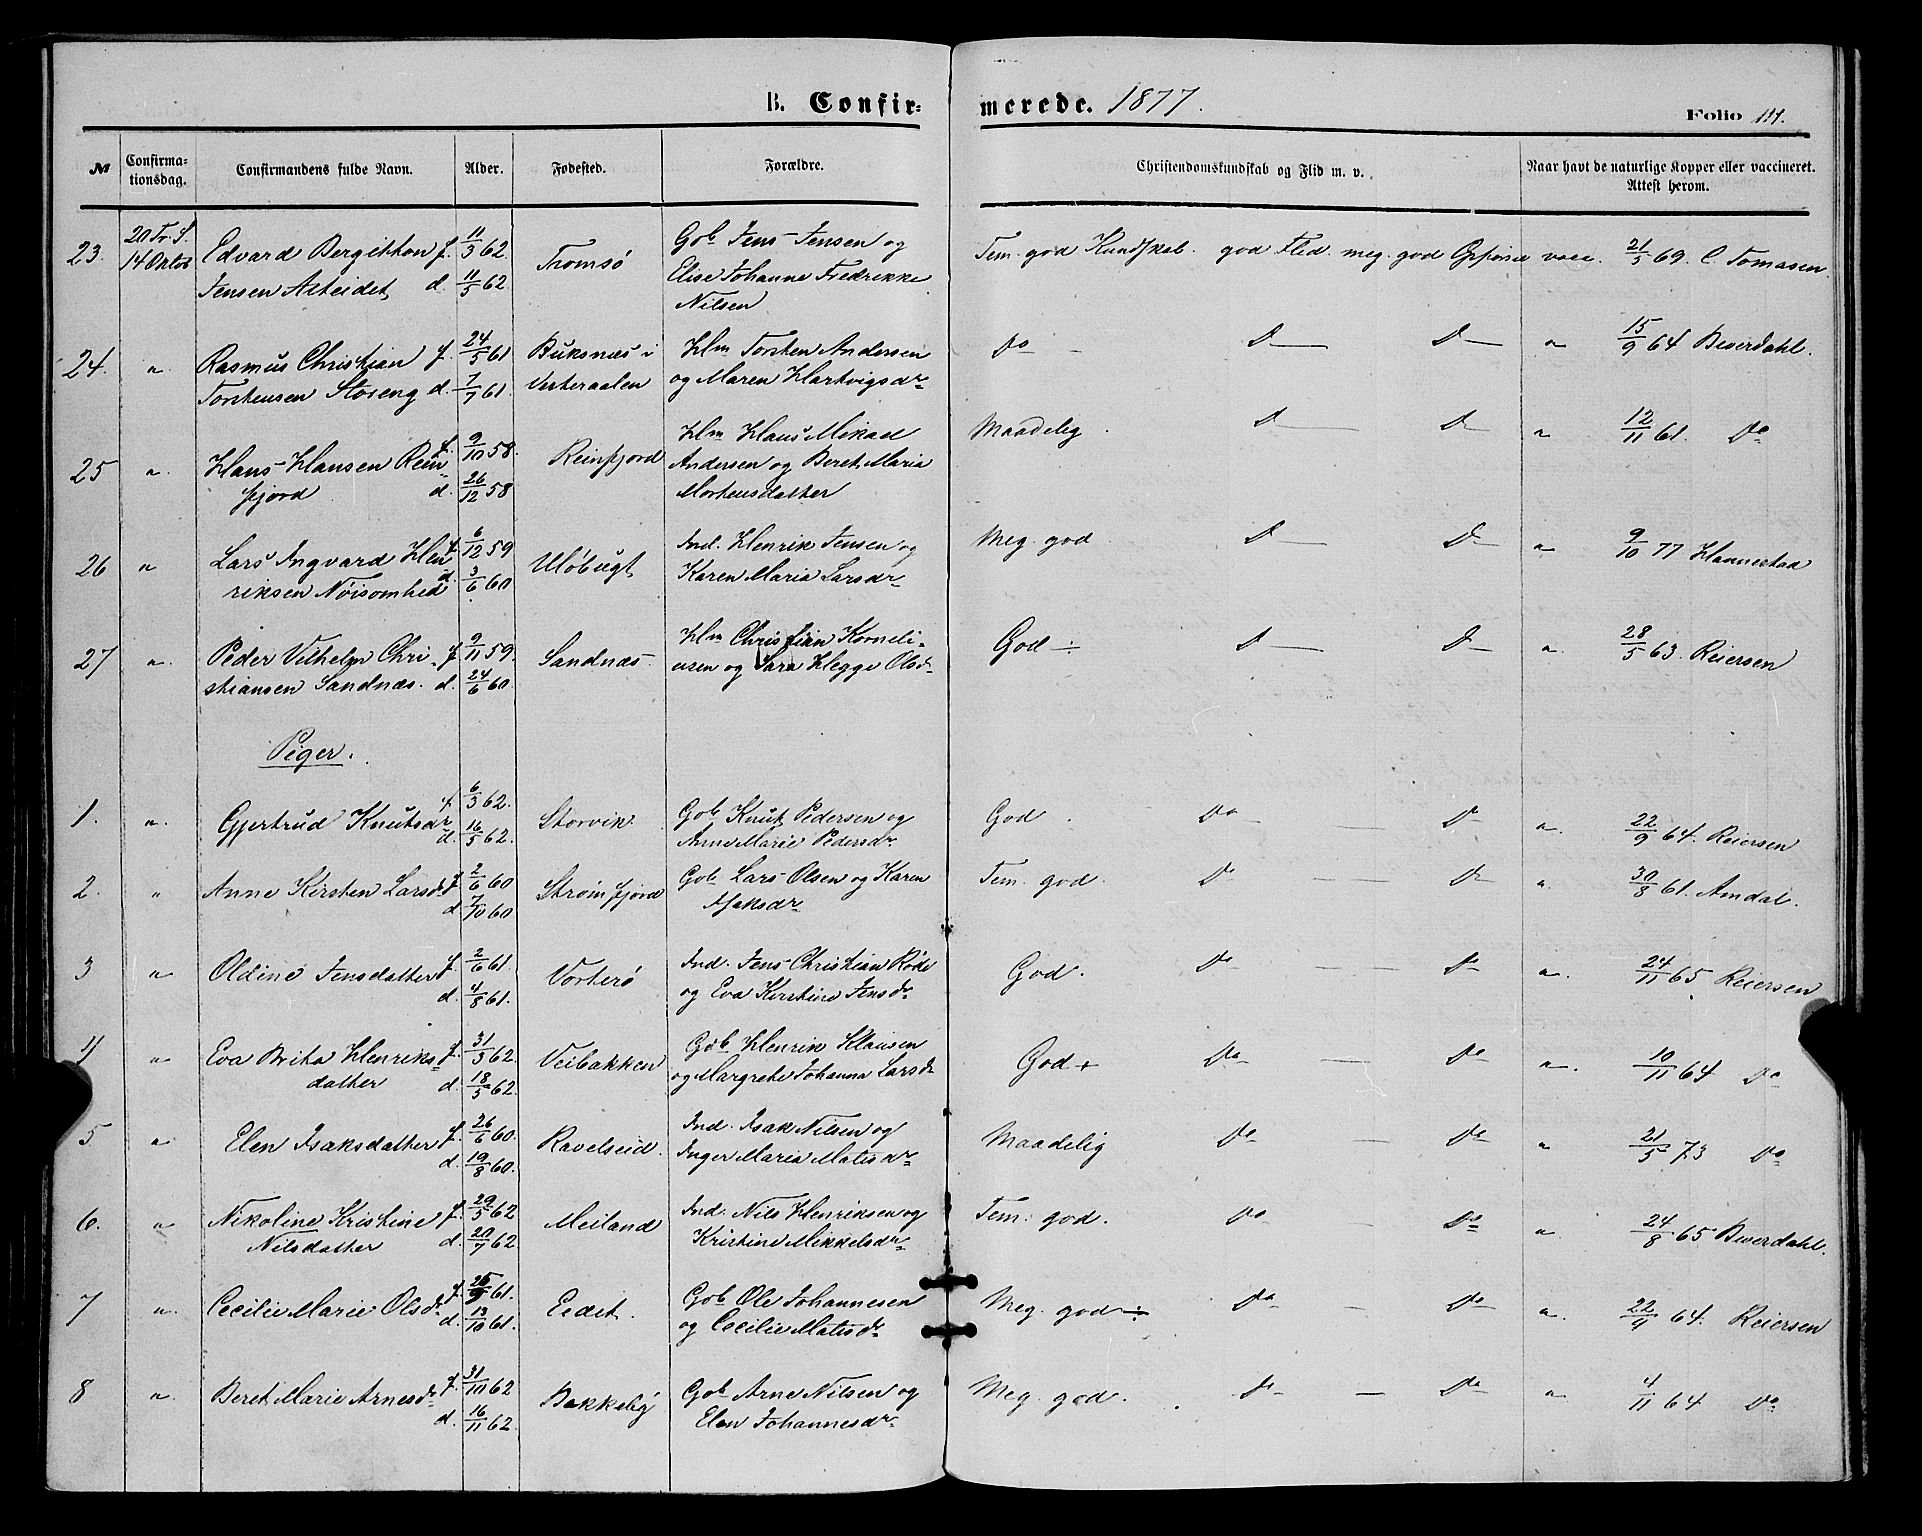 B. Confir-
merede. 1877.
Folio 111.
№
Confirma-
tionsdag.
Confirmandens fulde Navn.
Alder.
Fødested.
Forældre.
Christendomskundskab og Flid m. v.
Naar havt de naturlige Kopper eller vaccineret.
Attest herom.
23. 20 Tr. S. Edvard Bergithon f. 11/3 62. Tromsø Gbb Jens Jensen og Tem. god Kundskab. god Flid. meg. god Opførsel vacc. 21/5 69. C. Tomasen
14 Oktob Jensen Alteidet d. 11/5 62. Elise Johanne Fredrikke
Nilsen
24. " Rasmus Christian f. 24/5 61 Buksnæs i Hm Torsten Andersen Do D D " 15/9 64 Beverdahl.
Torstensen Storeng d. 7/7 61. Vesteraalen og Maren Hartvigsdr
25 " Hans Hansen Rein f. 9/10 58. Reinfjord Hm Hans Mikael Maadelig D D " 12/11 61. Do
fjord d. 26/12 58 Andersen og Beret Maria
Mortensdatter
26 " Lars Ingvard Hen f. 6/12 59 Uløbugt Ind. Henrik Jensen og Meg. god D D " 9/10 77 Hannestad
riksen Nøisomhed d. 3/6 60 Karen Maria Larsdr
27 " Peder Vilhelm Chri- f 9/11 59. Sandnæs Hm Christian Korneli- God ÷ D D " 28/5 63. Reiersen
stiansen Sandnæs. d. 24/6 60. usen og Sara Hegge Olsd
Piger.
1. " Gjertrud Knutsdr f. 6/3 62. Storvik Gob Knut Pedersen og God Do D " 22/9 64. Reiersen
d. 16/5 62. Anne Marie Pedersdr
2. " Anne Kirsten Larsdr f 2/6 60 Strømfjord Gob Lars Olsen og Karen Tem. god. Do D " 30/8 61. Amdal.
d. 7/10 60 Isaksdr
3 " Oldine Jensdatter f. 2/6 61. Vorterø Ind. Jens Christian Røde God. Do Do " 24/11 65 Reiersen
d. 4/8 61. og Eva Kirstine Jensdr
4 " Eva Brita Henriks- f. 31/3 62. Veibakken Gob Henrik Klausen God + Do Do " 10/11 64 Do
datter d. 18/5 62. og Margrethe Johanna Larsdr
5 " Elen Isaksdatter f. 26/6 60. Ravelseid. Ind. Isak Nilsen og Maadelig Do Do " 21/5 73 Do
d. 19/8 60. Inger Maria Matisdr
6. " Nikoline Kristine f. 29/5 62 Meiland Ind. Nils Henriksen og Tem. god. Do Do " 24/8 65 Beverdahl.
Nilsdatter d. 20/7 62. Kristine Mikkelsdr
7 " Cecilie Marie Olsdr f. 25/9 61. Eedet. Gob Ole Johannesen Meg. god ÷ Do Do " 22/9 64. Reiersen
d. 13/10 61. og Cecilie Matisdr
8 " Beret Marie Arnesdr f. 31/10 62 Bakkeby Gob Arne Nilsen og Meg. god. Do Do " 4/11 64 Do
d. 16/11 62. Elen Johannesdr